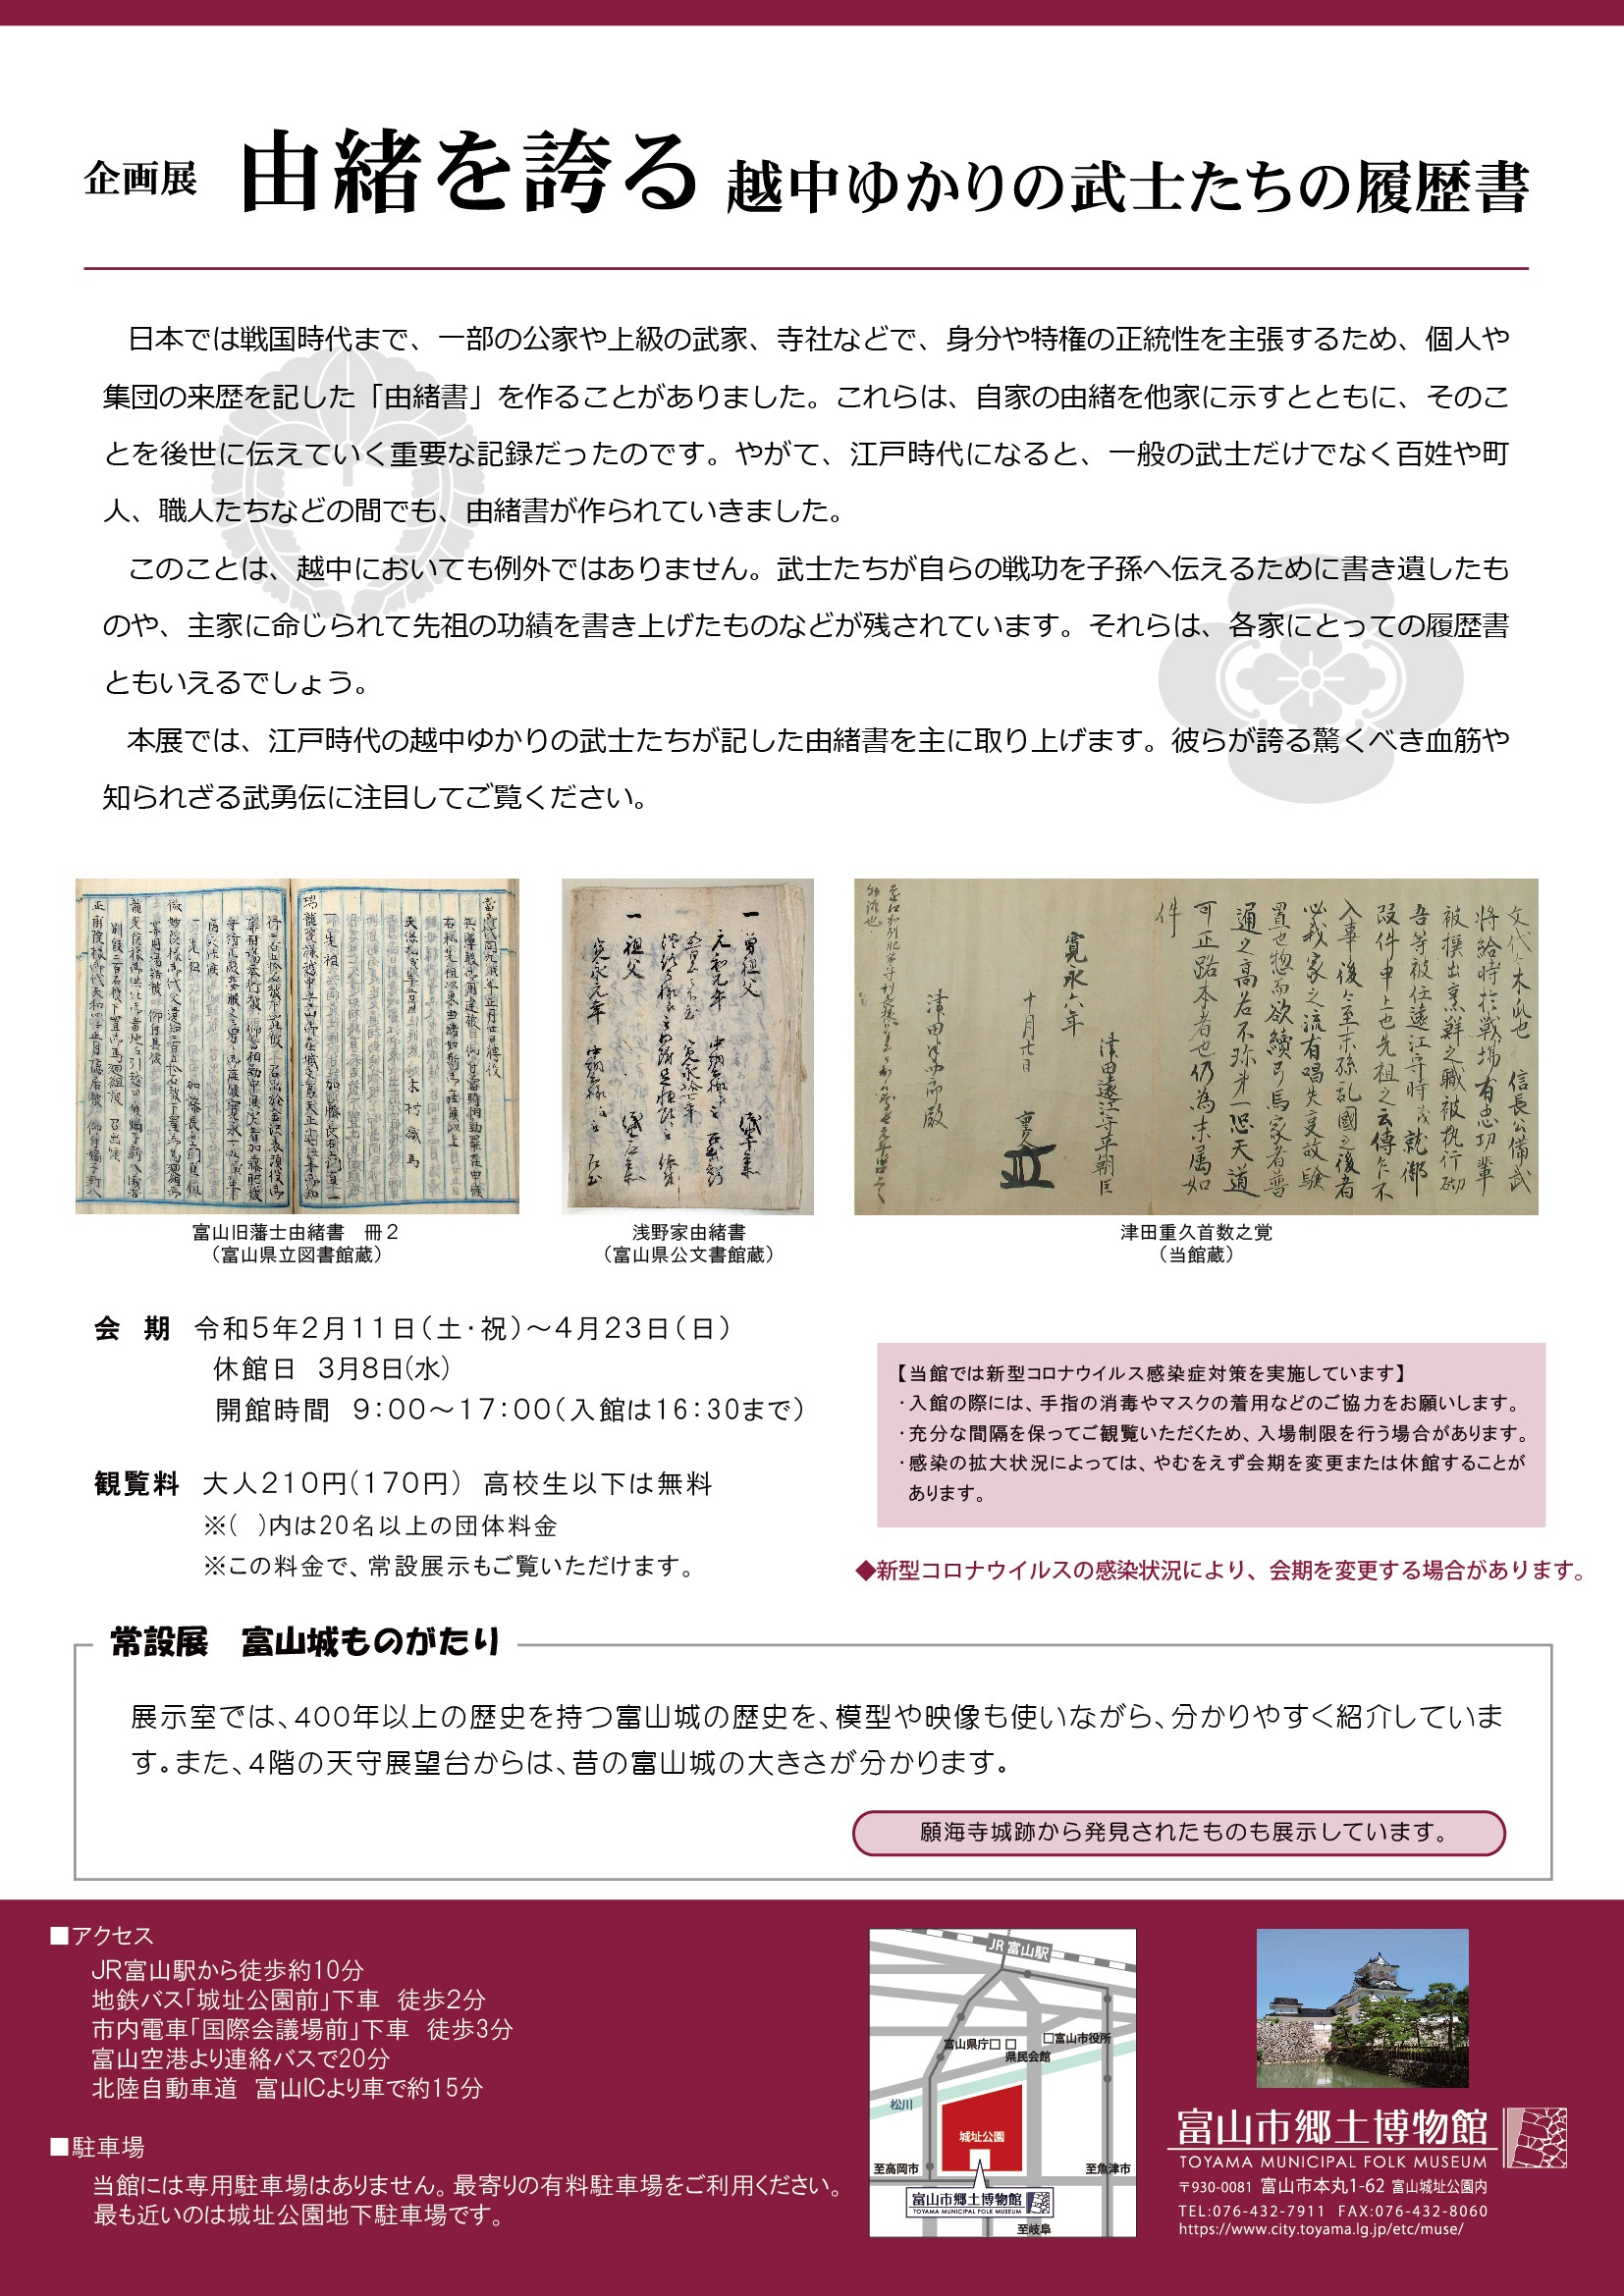 企画展 由緒を誇る 越中ゆかりの武士たちの履歴書
日本では戦国時代まで、一部の公家や上級の武家、寺社などで、身分や特権の正統性を主張するため、個人や
集団の来歴を記した「由緒書」を作ることがありました。これらは、自家の由緒を他家に示すとともに、そのこ
とを後世に伝えていく重要な記録だったのです。やがて、江戸時代になると、一般の武士だけでなく百姓や町
人、職人たちなどの間でも、由緒書が作られていきました。
このことは、越中においても例外ではありません。武士たちが自らの戦功を子孫へ伝えるために書き遺したも
のや、主家に命じられて先祖の功績を書き上げたものなどが残されています。それらは、各家にとっての履歴書
ともいえるでしょう。
本展では、江戸時代の越中ゆかりの武士たちが記した由緒書を主に取り上げます。彼らが誇る驚くべき血筋や
知られざる武勇伝に注目してご覧ください。
富山旧藩士由緒書 冊2
（富山県立図書館蔵）
浅野家由緒書
（富山県公文書館蔵）
津田重久首数之覚
（当館蔵）
会 期 令和5年2月11日（土・祝）～4月23日（日）
休館日 3月8日(水)
開館時間 9:00～17:00（入館は16:30まで）
観覧料 大人210円(170円) 高校生以下は無料
※( )内は20名以上の団体料金
※この料金で、常設展示もご覧いただけます。
【当館では新型コロナウイルス感染症対策を実施しています】
・入館の際には、手指の消毒やマスクの着用などのご協力をお願いします。
・充分な間隔を保ってご観覧いただくため、入場制限を行う場合があります。
・感染の拡大状況によっては、やむをえず会期を変更または休館することが
あります。
◆新型コロナウイルスの感染状況により、会期を変更する場合があります。
常設展 富山城ものがたり
展示室では、400年以上の歴史を持つ富山城の歴史を、模型や映像も使いながら、分かりやすく紹介していま
す。また、4階の天守展望台からは、昔の富山城の大きさが分かります。
願海寺城跡から発見されたものも展示しています。
■アクセス
JR富山駅から徒歩約10分
地鉄バス「城址公園前」下車 徒歩2分
市内電車「国際会議場前」下車 徒歩3分
富山空港より連絡バスで20分
北陸自動車道 富山ICより車で約15分
■駐車場
当館には専用駐車場はありません。最寄りの有料駐車場をご利用ください。
最も近いのは城址公園地下駐車場です。
JR 富山駅
富山県庁□ □
□富山市役所
県民会館
松川
城址公園
至高岡市
至魚津市
富山市郷土博物館
TOYAMA MUNICIPAL FOLK MUSEUM
至岐阜
富山市郷土博物館
TOYAMA MUNICIPAL FOLK MUSEUM
〒930-0081 富山市本丸1-62 富山城址公園内
TEL:076-432-7911 FAX:076-432-8060
https://www.city.toyama.lg.jp/etc/muse/